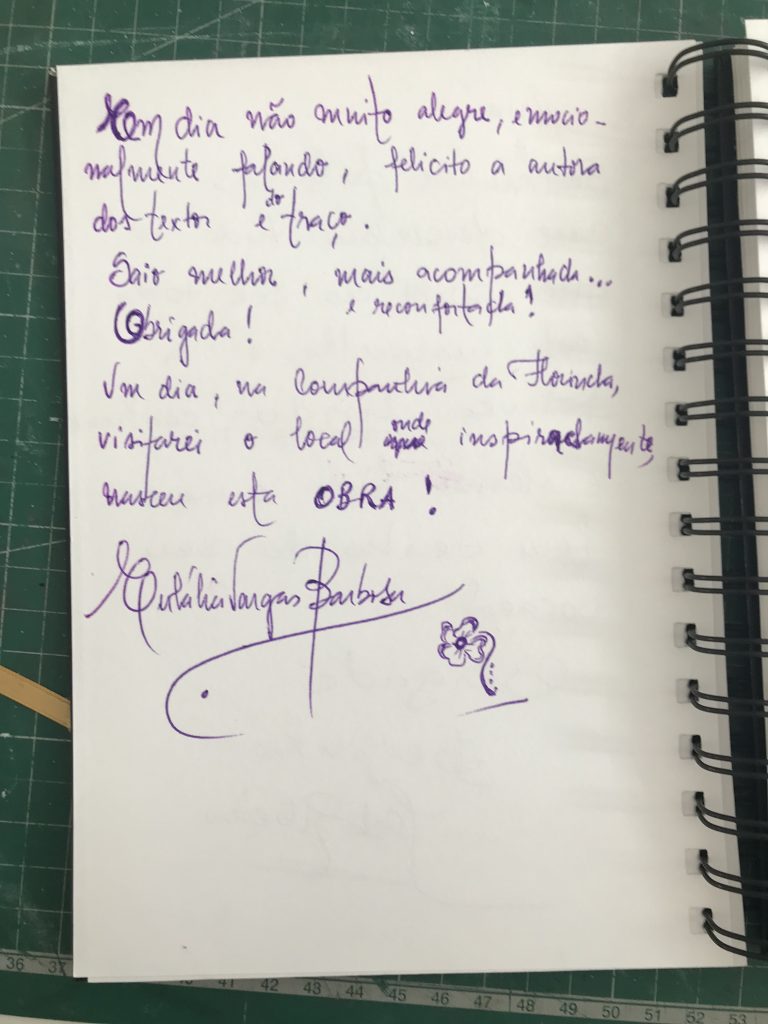 Em dia não muito alegre, emocio-
nalmente falando, felicito a autora
dos textos e do traço.
Saio melhor, mais acompanhada...
e reconfortada!
Obrigada!
Um dia, na companhia da Florinda,
visitarei o local onde inspiradamente,
nasceu esta OBRA!
Eulália Vargas Barbosa
36 37 40 41 42 43 44 45 46 47 48 49 50 51 52 53